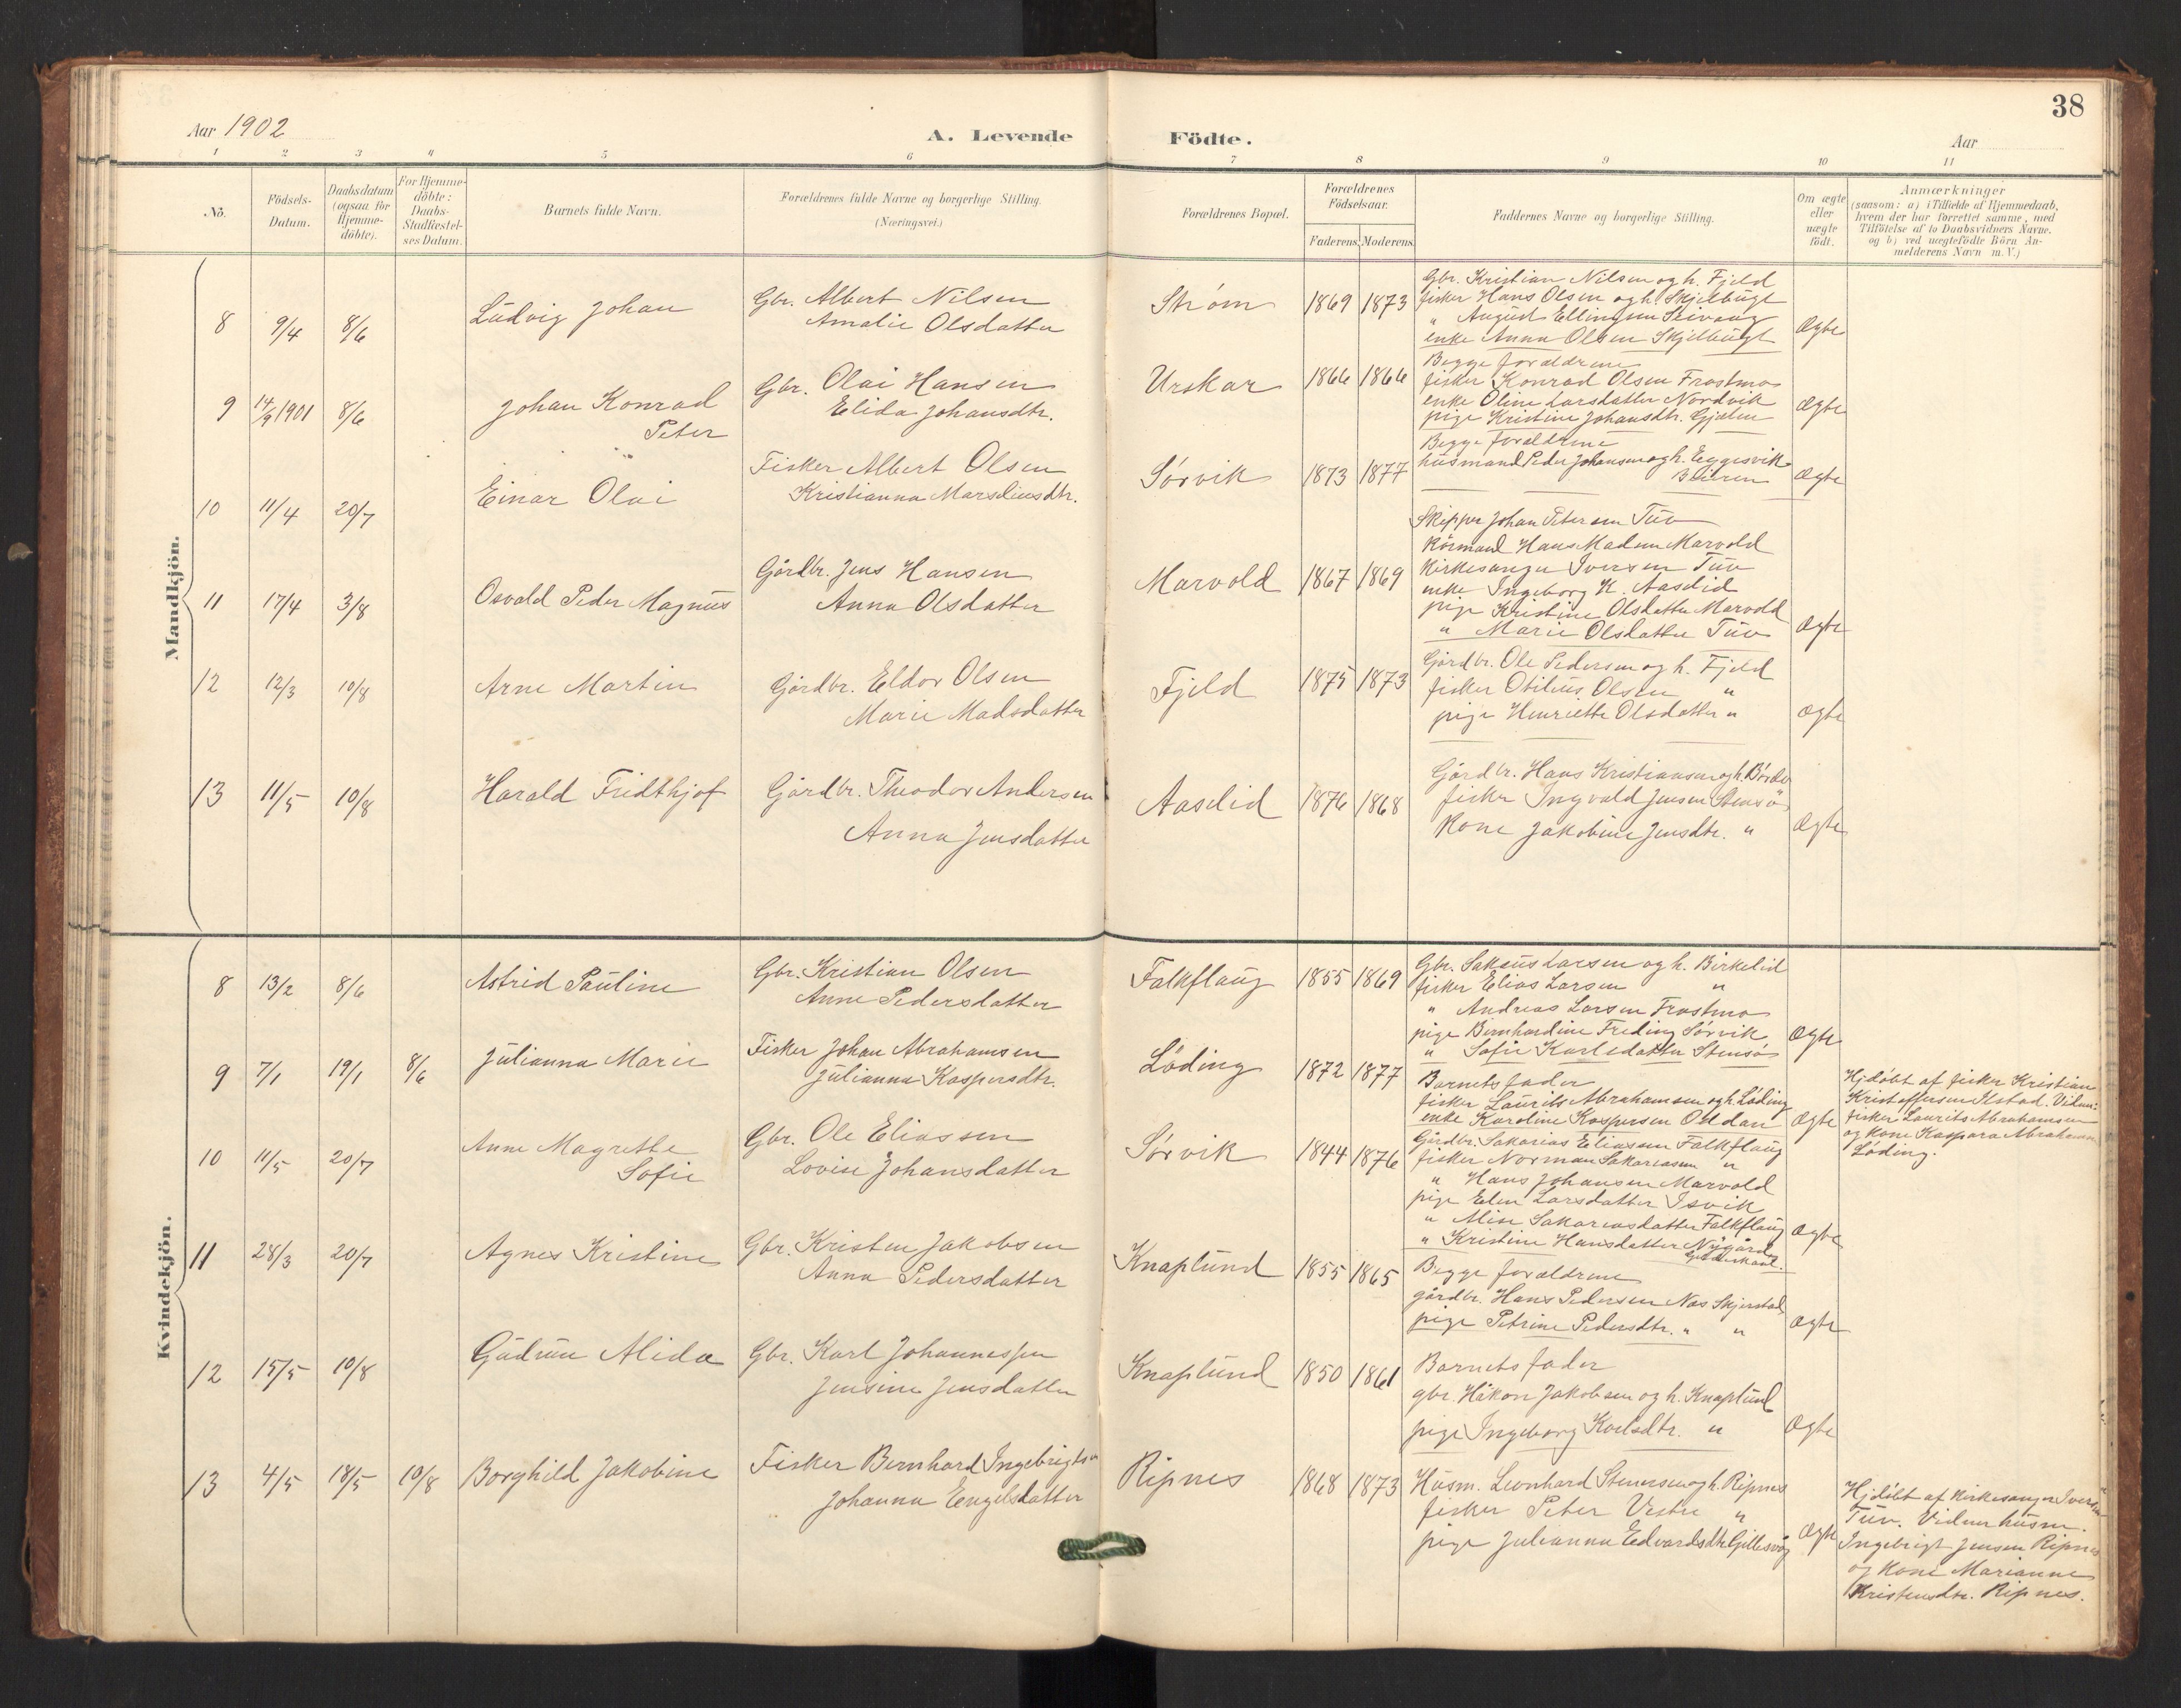 38
Aar 1902
A. Levende
Födte.
Aar
1 2 3 4 5 6 7 8 9 10 11
No.
Födsels-
Datum.
Daabsdatum
(ogsaa for
Hjemme-
döbte).
For Hjemme-
döbte:
Daabs-
Stadfæstel-
ses Datum.
Barnets fulde Navn.
Forældrenes fulde Navne og borgerlige Stilling.
(Næringsvei.)
Forældrenes Bopæl.
Forældrenes
Födselsaar.
Faderens. Moderens.
Faddernes Navne og borgerlige Stilling.
Om ægte
eller
uægte
födt.
Anmærkninger
(saasom: a) i Tilfælde af Hjemmedaab,
hvem der har forrettet samme, med
Tilföielse af to Daabsvidners Navne.
og b) ved uægtefödte Börn An-
melderens Navn m.V.)
Mandkjön.
8 9/4 8/6
Ludvig Johan
Gbr. Albert Nilsen
Amalie Olsdatter
Strøm 1869 1873
Gbr. Kristian Nilsen og h. Fjeld
fisker Hans Olsen og h. Skjelbugt
" August Ellingsen
enke Anna Olsen Skjelbugt
Ægte
9 14/9 1901 8/6
Johan Konrad
Peter
Gbr. Olai Hansen
Elida Johansdtr.
Urskar 1866 1866
Begge forældrene
fisker Konrad Olsen Frostmo
enke Oline Larsdatter Nordvik
pige Kristine Johansdtr. Gjælen
Ægte
10 11/4 20/7
Einar Olai
Fisker Albert Olsen
Kristianna Marseliusdtr.
Sørvik 1873 1877
Begge forældrene
husmand Peder Johansen og h. Eggesvik
Beieren
Ægte
11 17/4 3/8
Osvald Peder Magnus
Gårdbr. Jens Hansen
Anna Olsdatter
Marvold 1867 1869
Skipper Johan Petersen Tuv
Hans Madsen Marvold
Kirkesanger Iversen Tuv
enke Ingeborg H. Aaselid
pige Kristine Olsdatter Marvold
" Marie Olsdatter Tuv
Ægte
12 12/3 10/8
Arne Martin
Gårdbr. Eldor Olsen
Marie Madsdatter
Fjeld 1875 1873
Gårdbr. Ole Pedersen og h. Fjeld
fisker Otilius Olsen "
pige Henriette Olsdatter "
Ægte
13 11/5 10/8
Harald Fridthjof
Gårdbr. Theodor Andersen
Anna Jensdatter
Aaselid 1876 1868
Gårdbr. Hans Kristiansen og h.
fisker Ingvald Jensen Stensø
Kone Jakobine Jensdtr. "
Ægte
Kvindekjön.
8 13/2 8/6
Astrid Pauline
Gbr. Kristian Olsen
Anne Pedersdatter
Falkflaug 1855 1869
Gbr. Sakæus Larsen og h. Birkelid
fisker Elias Larsen "
" Andreas Larsen Frostmo
pige Bernhardine Freding Sørvik
" Sofie Karlsdatter Stensø
Ægte
9 7/1 19/1 8/6
Julianna Marie
Fisker Johan Abrahamsen
Julianna Kaspersdtr.
Löding 1872 1877
Barnets fader
fisker Laurits Abrahamsen og h. Løding
enke Karoline Kaspersen Oddan
Ægte
Hjdøbt af fisker Kristian
Kristoffersen Ilstad. Vidner:
fisker Laurits Abrahamsen
og kone Kaspara Abrahamsen
Løding.
10 11/5 20/7
Anne Magrethe
Sofie
Gbr. Ole Eliassen
Lovise Johansdatter
Sørvik 1844 1876
Gårdbr. Sakarias Eliassen Falkflaug
fisker Norman Sakariassen "
" Hans Johansen Marvold
pige Elen Larsdatter Isvik
" Alise Sakariasdatter Falkflaug
" Kristine Hansdatter Nygård
Gildeskaal.
Ægte
11 28/3 20/7
Agnes Kristine
Gbr. Kristen Jakobsen
Anna Pedersdatter
Knaplund 1855 1865
Begge forældrene
gårdbr. Hans Pedersen Næs Skjerstad
pige Petrine Pedersdtr. " "
Ægte
12 15/5 10/8
Gudrun Alida
Gbr. Karl Johannessen
Jensine Jensdatter
Knaplund 1850 1861
Barnets fader
gbr. Håkon Jakobsen og h. Knaplund
pige Ingeborg Karlsdtr. "
Ægte
13 4/5 18/5 10/8
Borghild Jakobine
Fisker Bernhard Ingebrigtsen
Johanna Engelsdatter
Ripnes 1868 1873
Husm. Leonhard Stenersen og h. Ripnes
fisker Peter Vestre "
pige Julianna Edvardsdtr. Gillesvåg
Ægte
Hjdøbt af Kirkesanger Iversen
Tuv. Vidner husm.
Ingebrigt Jensen Ripnes
og kone Marianne
Kristensdtr. Ripnes.